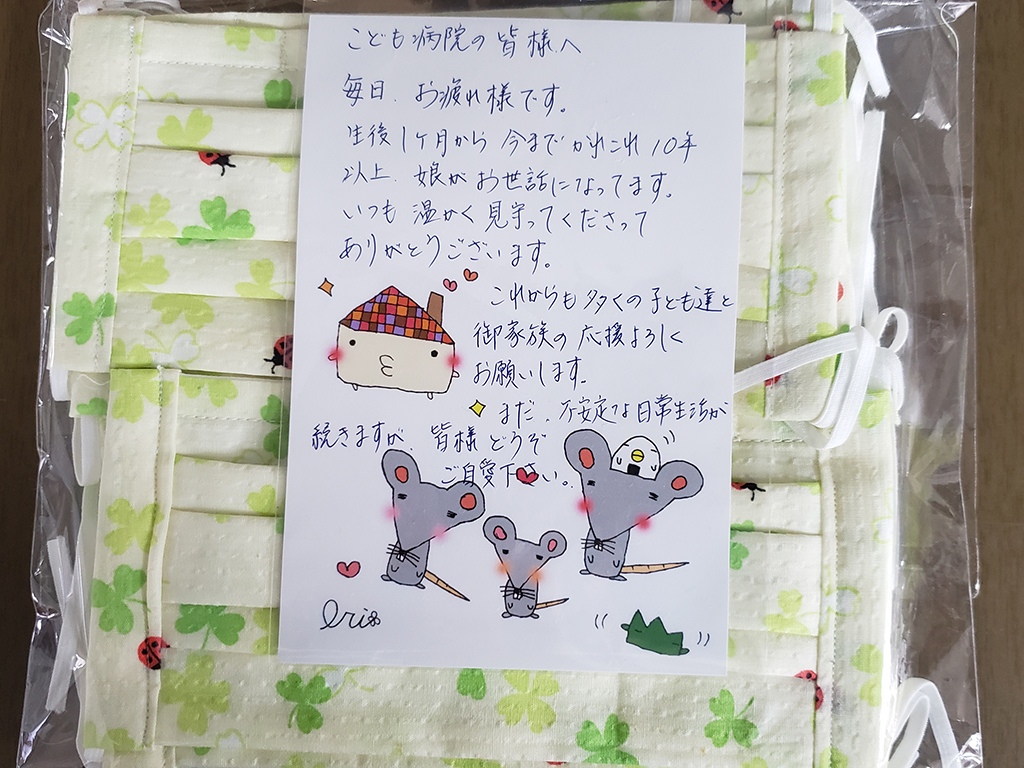 こども病院の皆様へ
毎日、お疲れ様です。
生後1ヶ月から今までかれこれ10年
以上、娘がお世話になってます。
いつも温かく見守ってくださって
ありがとうございます。
これからも多くの子ども達と
御家族の応援よろしく
お願いします。
まだ、不安定な日常生活が
続きますが、皆様どうぞ
ご自愛下さい。
eri